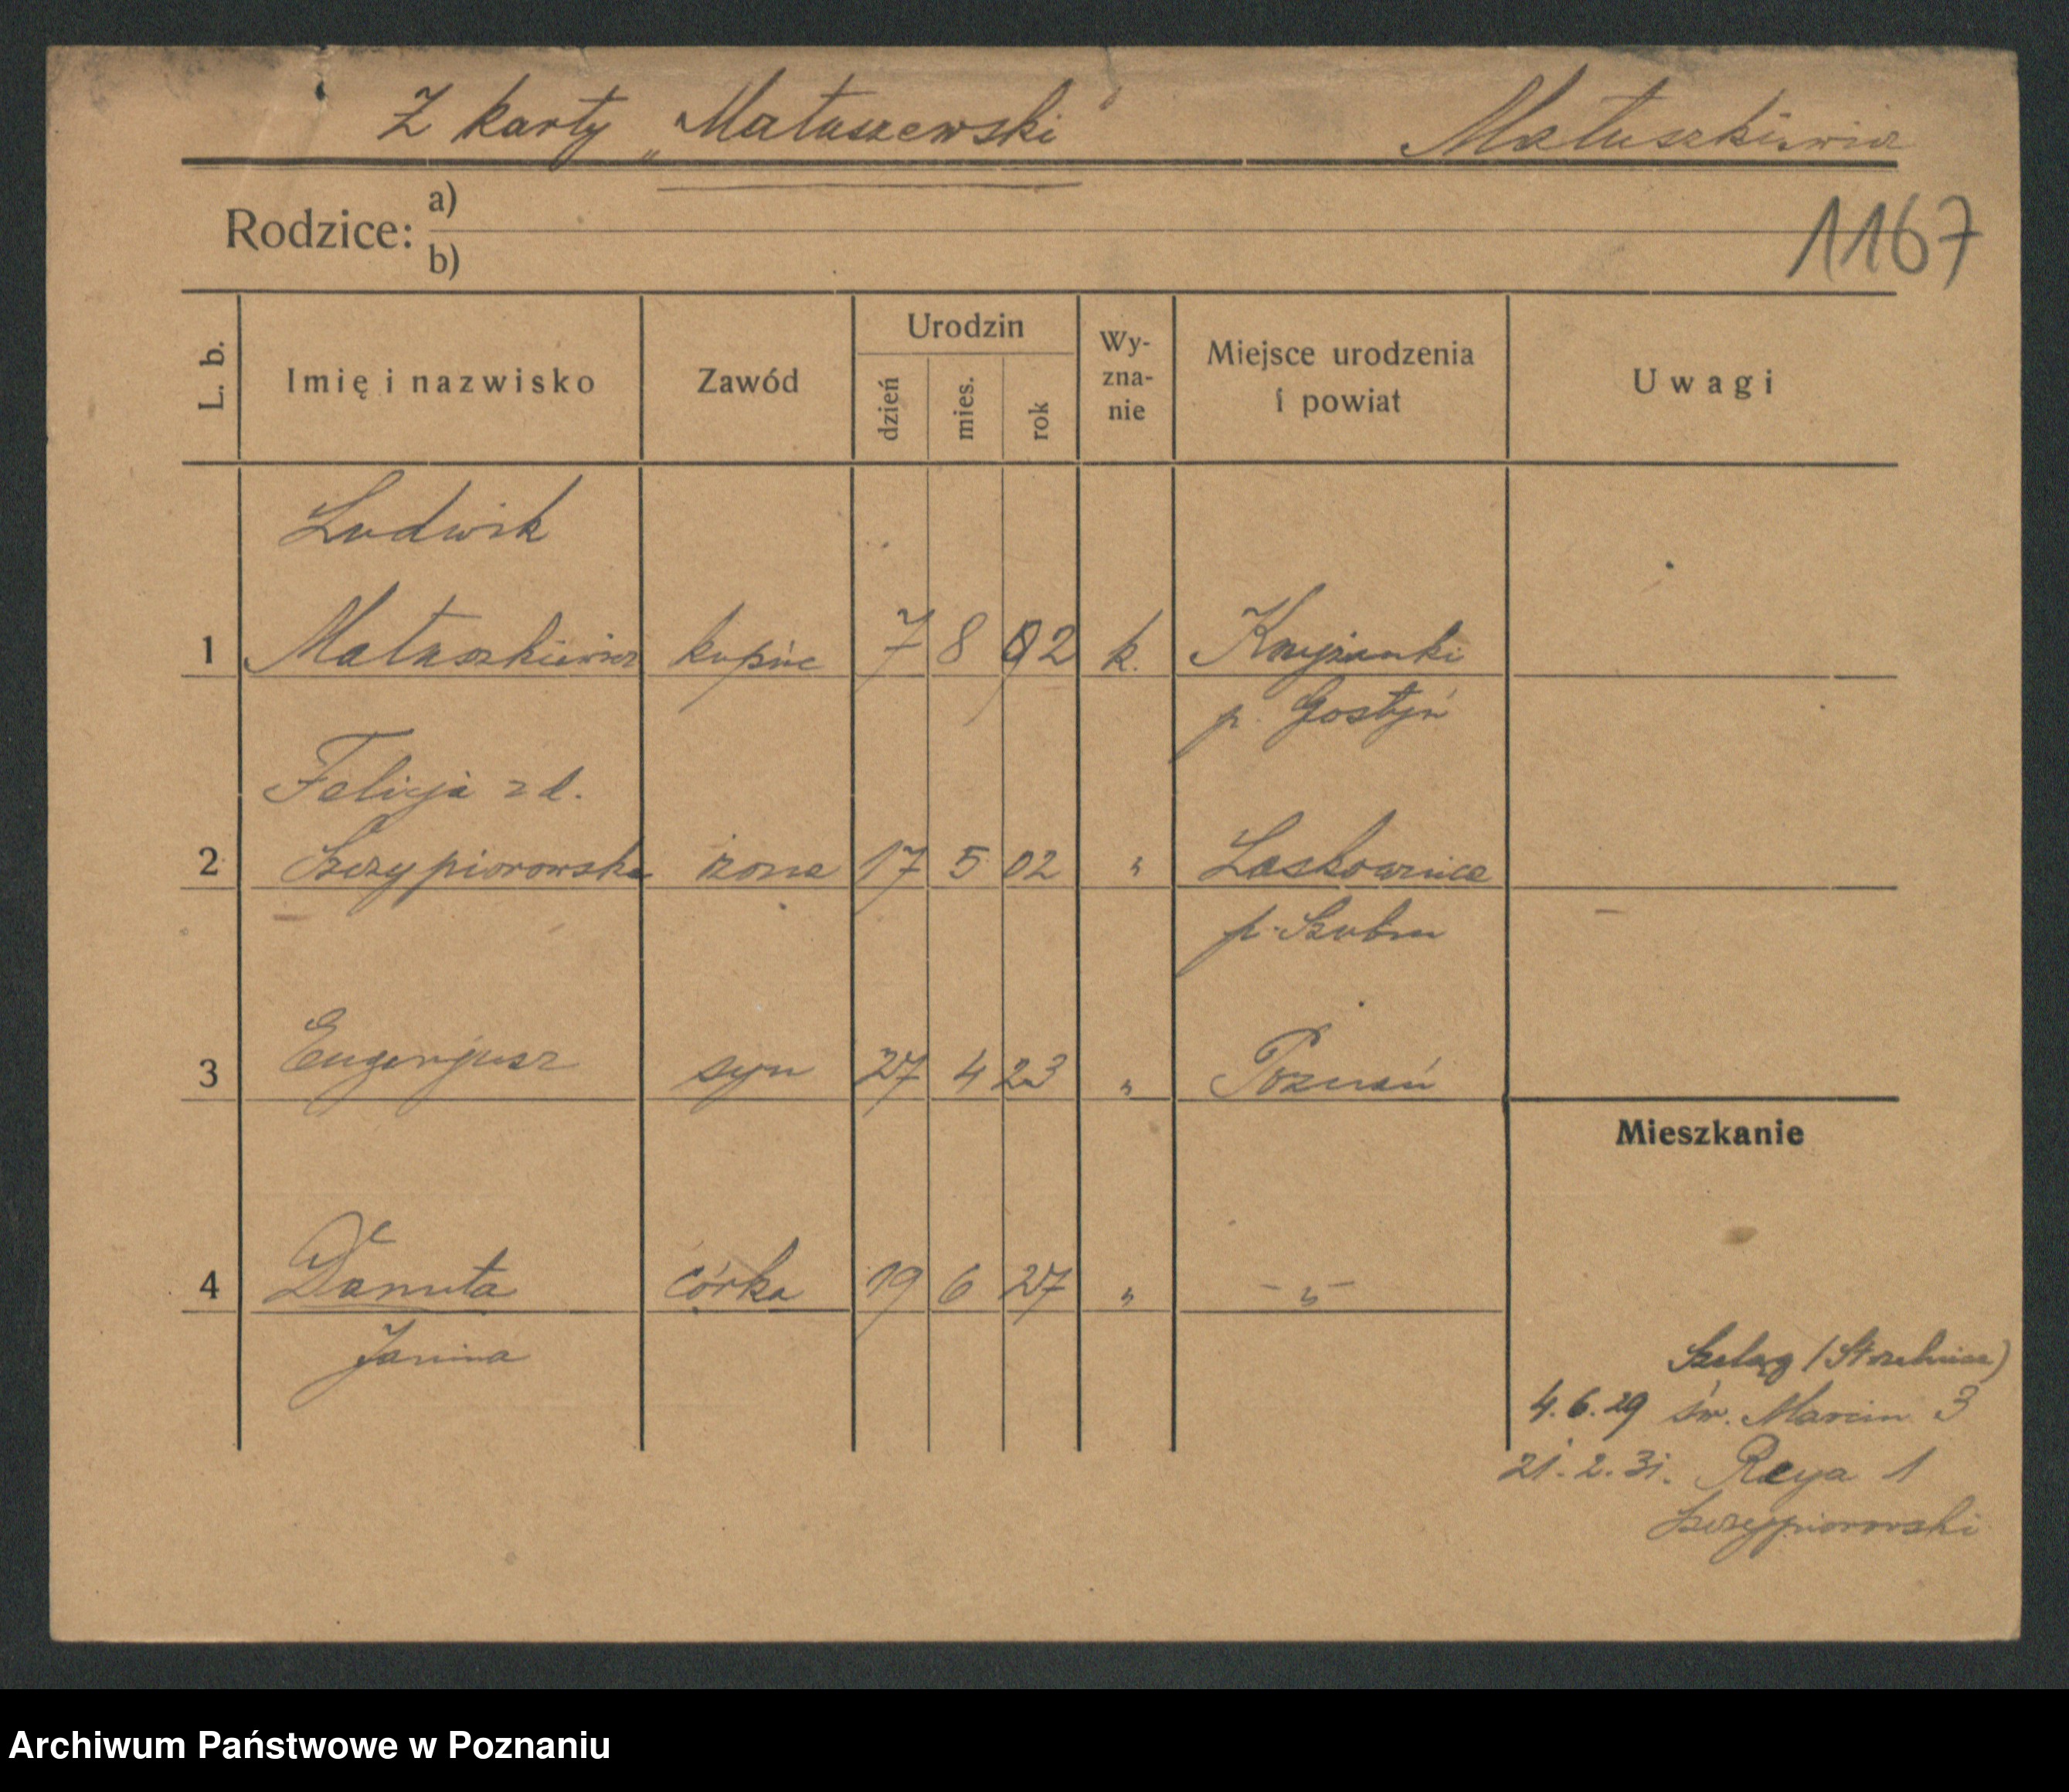 Z karty „Matuszewski" Matuszkiewicz
Rodzice: a)
b)
1167
L. b. Imię i nazwisko Zawód Urodzin dzień mies. rok Wy-zna-nie Miejsce urodzenia i powiat Uwagi
Ludwik
1 Matuszkiewicz kupiec 7 8 02 k. Krzyżanki
p. Gostyń
Felicja z d.
2 Szczypiorowska żona 17 5 02 " Laskownica
p. Szubin
3 Eugenjusz syn 27 4 23 " Poznań
Mieszkanie
4 Danuta córka 19 6 27 " -"-
Janina
Szeląg (Strzelnica)
4.6.29 św. Marcin 3
21.2.31. Reya 1
Szczypiorowski
Archiwum Państwowe w Poznaniu